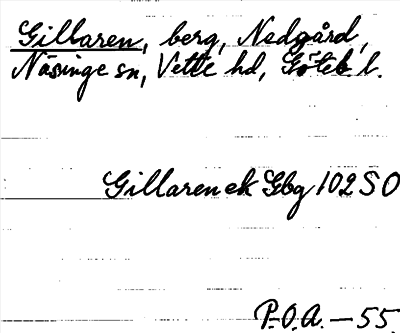 Gillaren, berg, Nedgård,
Näsinge sn, Vette hd, Göteb l.
Gillaren ek Gbg 102 SO
P.O.A. — 55.